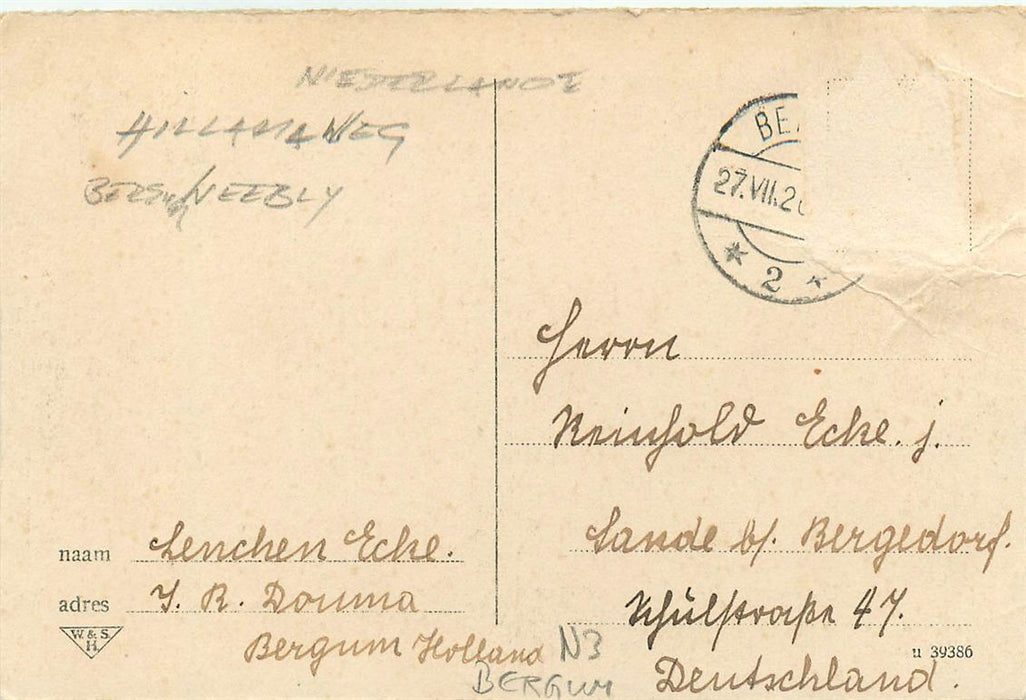 NIEDERLANDE
BE
27.VII.2
2
Herrn
Reinhold Ecke. j.
Sande b/. Bergedorf.
Schülstraße 47.
Deutschland.
naam Lenchen Ecke.
adres J. R. Douma
Bergum Holland N3
BERGUM
W. & S.
H.
u 39386